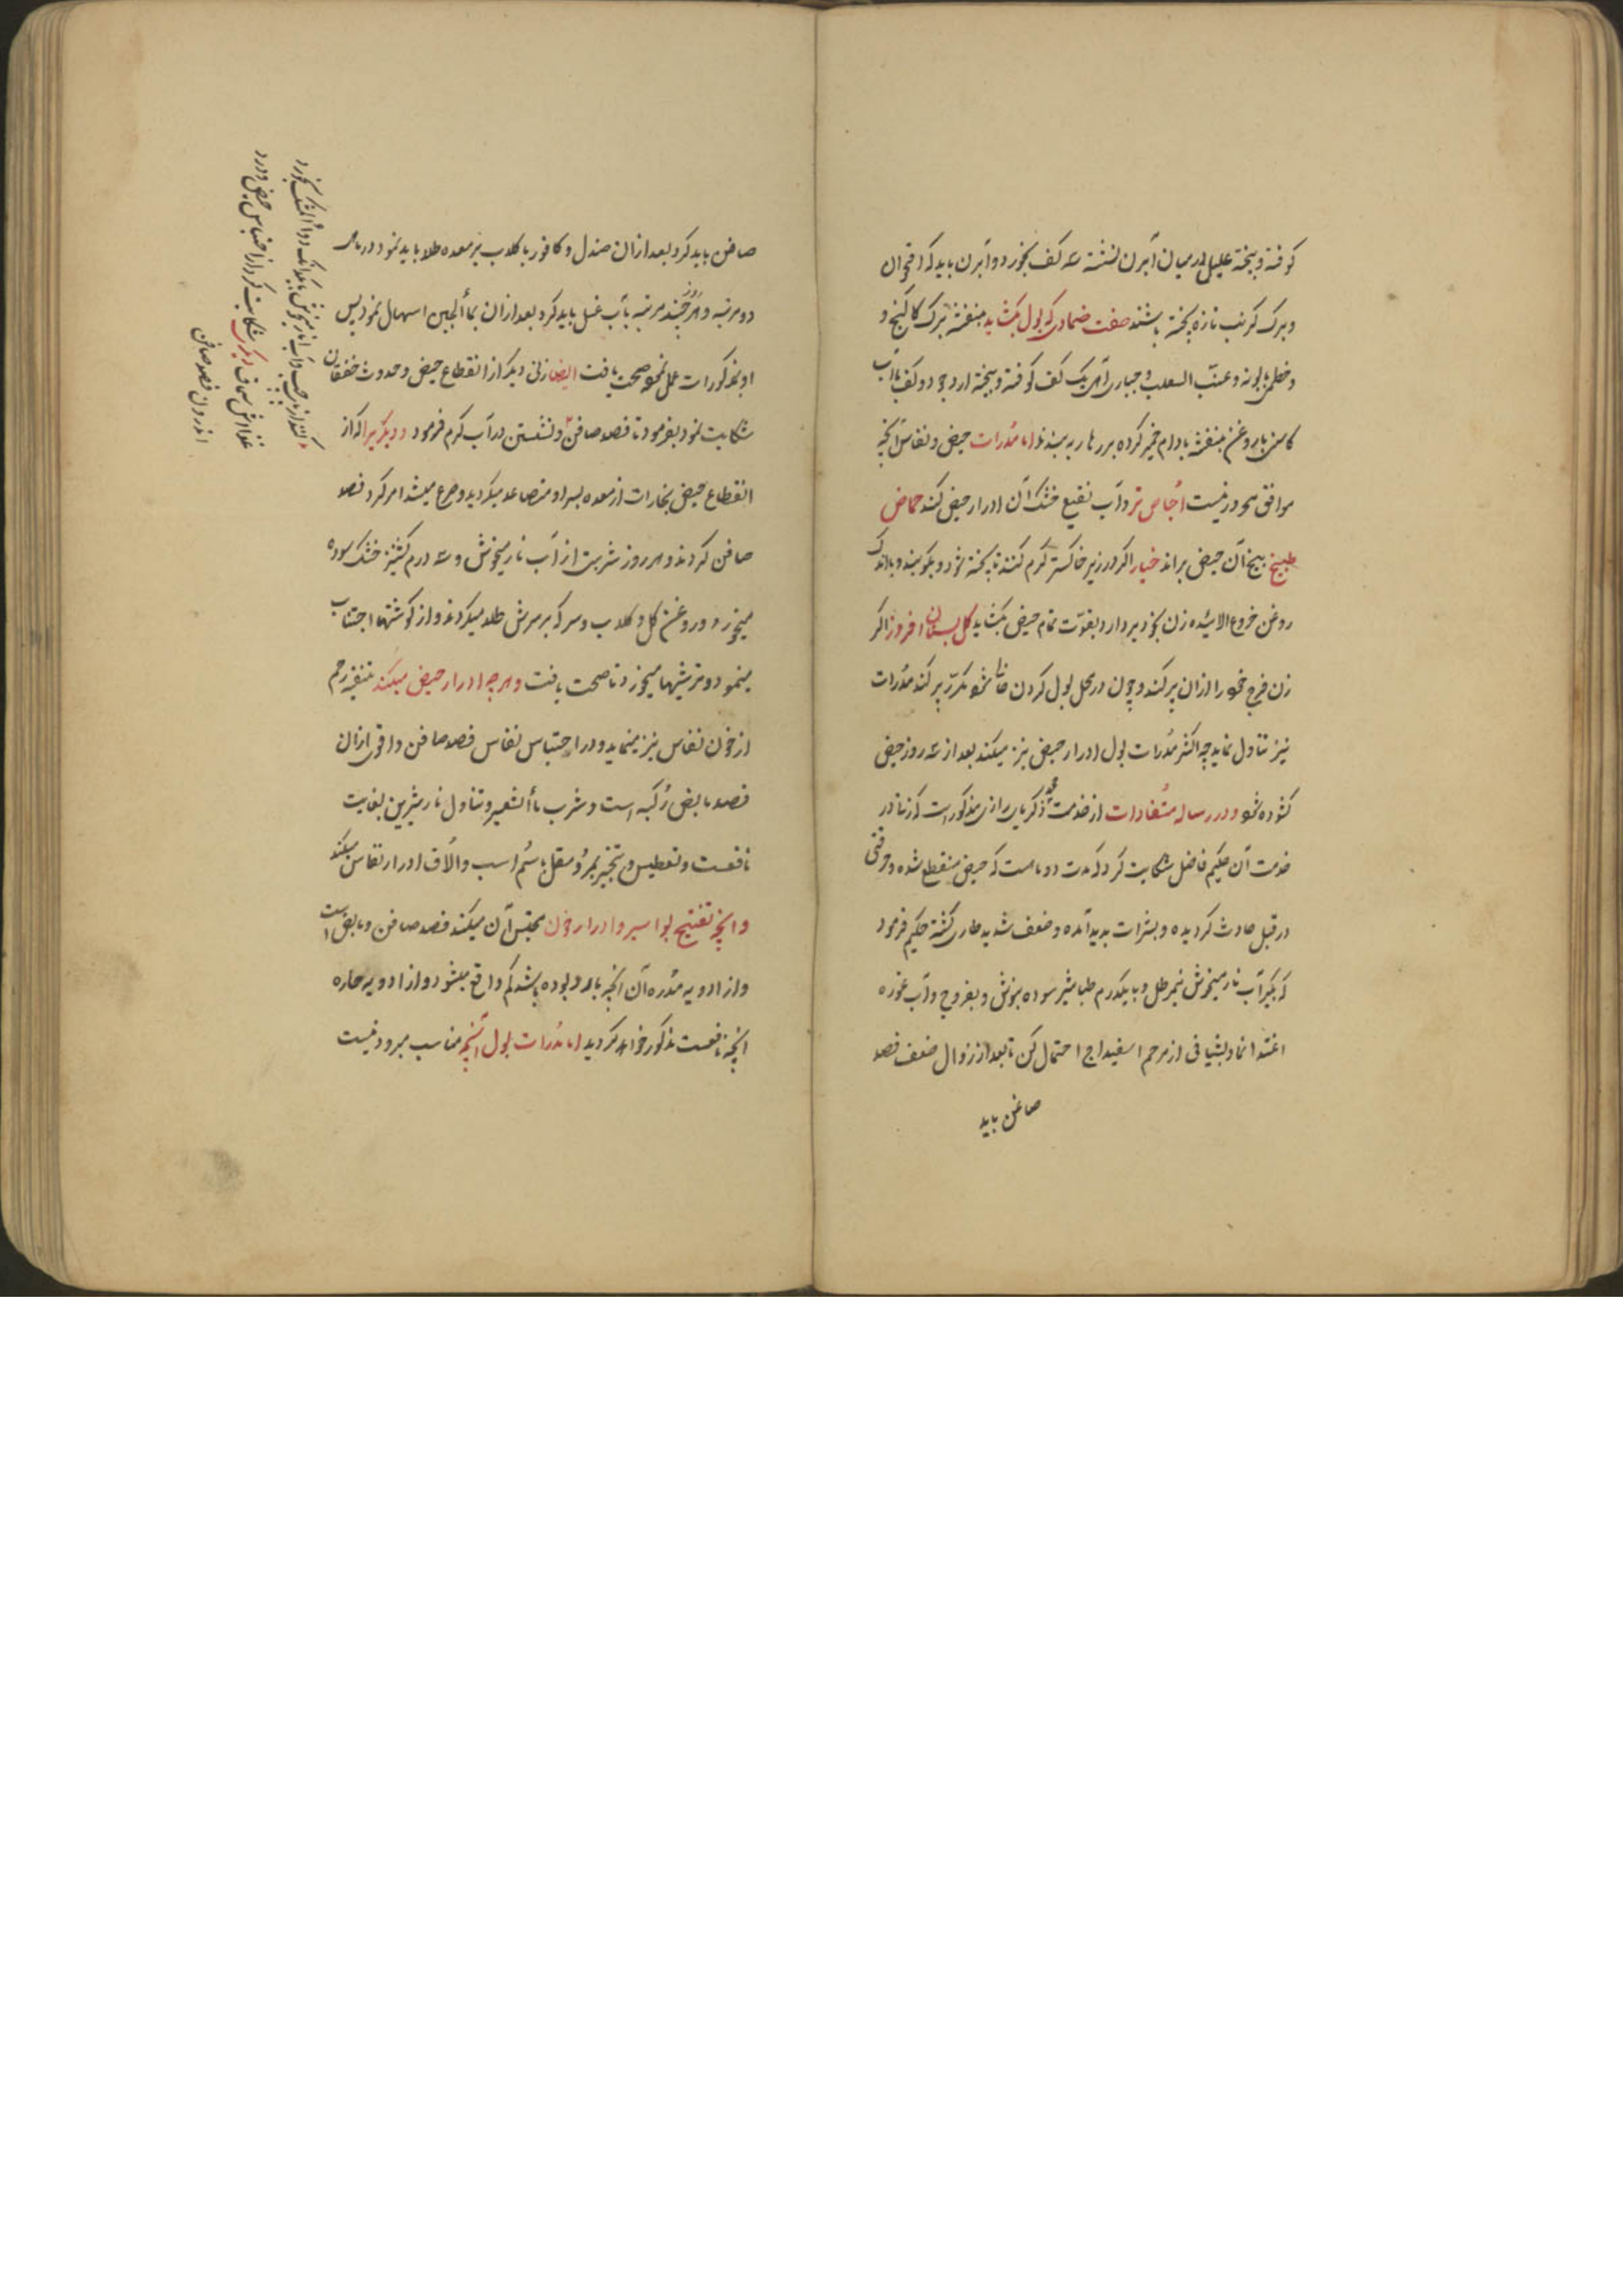 کوفته و بیخته علیل در میان آبزن نشسته سه کف بخورد و آبزن باید که اقحوان
و برک کرنب تازه پخته باشند صفت ضمادی که بول بکشاید بنفشه برک کاکنج و
و خطمی بابونه و عنب السعلب و جباری از هر یک کف کوفته و بیخته ارد جو دو کف با آب
کاسنی با روغن بنفشه بادام خمیر کرده بر زهار به بندند اما مُدرات حیض و نفاس آنچه
موافق محرورنیست اجّاص تر و آب نقیع خشک آن ادرار حیض کند حماض
طبیخ بیخ آن حیض براند خیار اکر در زیر خاکستر کرم کنند تا پخته شود و بکوبند و باندک
روغن خروع الائیده زن بخود بردارد بقوّت تمام حیض بکشاید کل بستان افروز اکر
زن فرج خود را ازان پر کند و چون در محل بول کردن خالی شود مکرّر پر کند مُدرات
نیز تناول نماید چه اکثر مُدرات بول ادرار حیض نیز میکند بعد از سه روز حیض
کشوده شود و در رساله مستفادات از خدمت محمد ذکریای رازی مذکور است که زنی در
خدمت آن حکیم فاضل شکایت کرد که مدت دو ماهست که حیض منقطع شده و حرقتی
در قبل حادث کردیده و بشرات بدید آمده و ضعف شدید طاری کشته حکیم فرمود
که بکیر آب نار میخوش نیم رطل و با یکدرم طباشیر سوده بنوش و بفروج و آب غوره
اغتذا نما و بشیافی از مرهم اسفیداج احتمال کن تا بعد از زوال ضعف فصد
صافن باید
صافن باید کرد بعد ازان صندل و کافور با کلاب بر معده طلا باید نمود در ماهی
دو مرتبه و هر روز چند مرتبه بآب غسل باید کرد بعد ازان بمأ الجبن اسهال نمود پس
او بمذکورات عمل نموده صحت یافت ایضا زنی دیکر از انقطاع حیض و حدوث خفقان
شکایت نمود بفرمود تا فصد صافن و نشستن در آب کرم فرمود و دیکریرا که از
انقطاع حیض بخارات از معده بسر او متصاعد میکردید و صرع میشد امر کرد فصد
صافن کردند و هر روز شربت از آب نار میخوش و سه درم کشنیز خشک سوده
میخورد و روغن کل و کلاب و سرکه بر سرش طلا میکردند و از کوشتها اجتناب
مینمود و ترشیها میخورد تا صحت یافت و هرچه ادرار حیض میکند تنقیه رحم
از خون نفاس نیز مینماید و در احتباس نفاس فصد صافن و اقوی ازان
فصد مابض رُکبه است و شرب مأ الشعیر و تناول نار شیرین بغایت
نافعست و تعطیس و تبخیر بمر و مقل با سُم اسب و الاّف ادرار نفاس میکند
و انچه تفتیح بواسیر و ادرار خون محتبس آن میکند فصد صافن و مابض است
و از ادویه مُدره آن انچه بارد بوده باشد کم واقع میشود و از ادویه حاره
انچه نافعست مذکور خواهد کردید اما مُدرات بول آنچه مناسب مبرود نیست
غذا اش سماق دیکری شکایت کرد از احتباس حیض و درد
اندرون فصد صافن